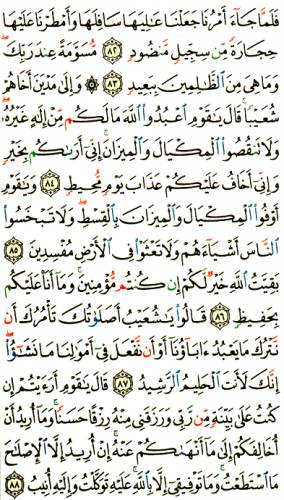 فَلَمَّا جَآءَ أَمْرُنَا جَعَلْنَا عَٰلِيَهَا سَافِلَهَا وَأَمْطَرْنَا عَلَيْهَا
حِجَارَةً مِّن سِجِّيلٍ مَّنضُودٍ ٨٢ مُّسَوَّمَةً عِندَ رَبِّكَ ۖ
وَمَا هِىَ مِنَ ٱلظَّٰلِمِينَ بِبَعِيدٍ ٨٣ ۞ وَإِلَىٰ مَدْيَنَ أَخَاهُمْ
شُعَيْبًا ۚ قَالَ يَٰقَوْمِ ٱعْبُدُوا۟ ٱللَّهَ مَا لَكُم مِّنْ إِلَٰهٍ غَيْرُهُۥ ۖ
وَلَا تَنقُصُوا۟ ٱلْمِكْيَالَ وَٱلْمِيزَانَ ۚ إِنِّىٓ أَرَىٰكُم بِخَيْرٍ
وَإِنِّىٓ أَخَافُ عَلَيْكُمْ عَذَابَ يَوْمٍ مُّحِيطٍ ٨٤ وَيَٰقَوْمِ
أَوْفُوا۟ ٱلْمِكْيَالَ وَٱلْمِيزَانَ بِٱلْقِسْطِ ۖ وَلَا تَبْخَسُوا۟
ٱلنَّاسَ أَشْيَآءَهُمْ وَلَا تَعْثَوْا۟ فِى ٱلْأَرْضِ مُفْسِدِينَ ٨٥
بَقِيَّتُ ٱللَّهِ خَيْرٌ لَّكُمْ إِن كُنتُم مُّؤْمِنِينَ ۚ وَمَآ أَنَا۠ عَلَيْكُم
بِحَفِيظٍ ٨٦ قَالُوا۟ يَٰشُعَيْبُ أَصَلَوٰتُكَ تَأْمُرُكَ أَن
نَّتْرُكَ مَا يَعْبُدُ ءَابَآؤُنَآ أَوْ أَن نَّفْعَلَ فِىٓ أَمْوَٰلِنَا مَا نَشَٰٓؤُا۟ ۖ
إِنَّكَ لَأَنتَ ٱلْحَلِيمُ ٱلرَّشِيدُ ٨٧ قَالَ يَٰقَوْمِ أَرَءَيْتُمْ إِن
كُنتُ عَلَىٰ بَيِّنَةٍ مِّن رَّبِّى وَرَزَقَنِى مِنْهُ رِزْقًا حَسَنًا ۚ وَمَآ أُرِيدُ أَنْ
أُخَالِفَكُمْ إِلَىٰ مَآ أَنْهَىٰكُمْ عَنْهُ ۚ إِنْ أُرِيدُ إِلَّا ٱلْإِصْلَٰحَ
مَا ٱسْتَطَعْتُ ۚ وَمَا تَوْفِيقِىٓ إِلَّا بِٱللَّهِ ۚ عَلَيْهِ تَوَكَّلْتُ وَإِلَيْهِ أُنِيبُ ٨٨